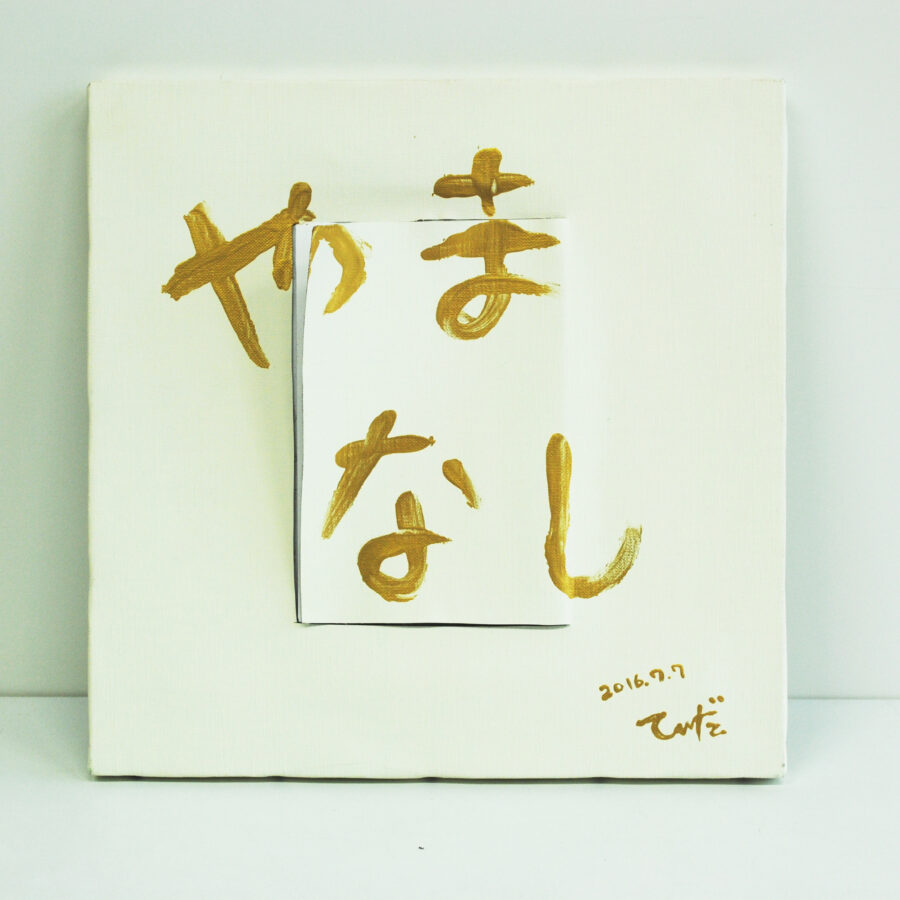 やま
なし
2016.7.7